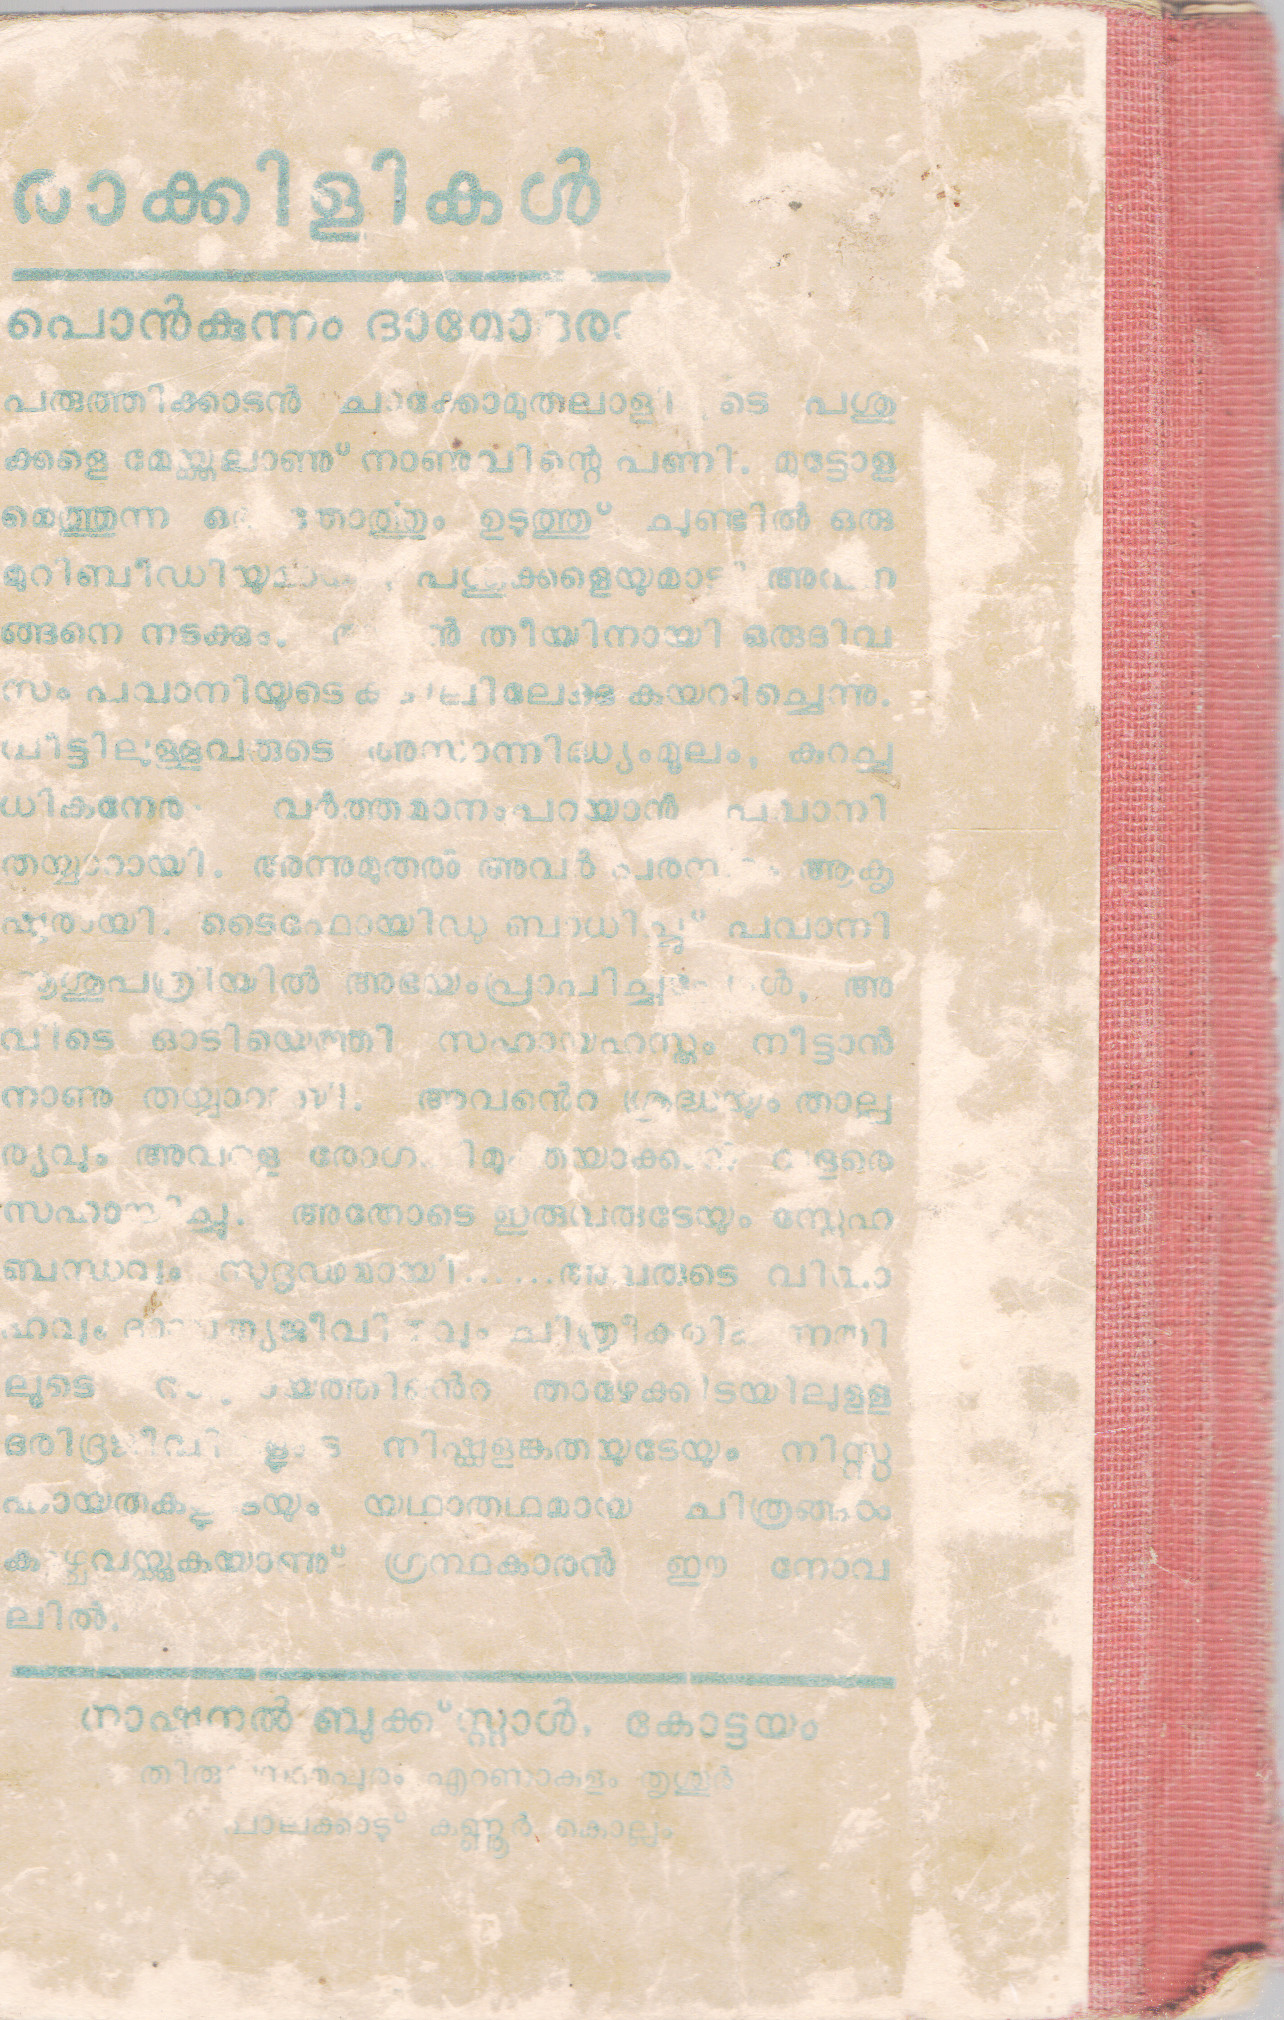 രാക്കിളികൾ
പൊൻകുന്നം
പരുത്തിക്കാടൻ ചാക്കോമുതലാളി ടെ പശു
ക്കളെ മേയ്ക്കലാണു് നാണുവിന്റെ പണി. മുട്ടോള
മെത്തുന്ന തോർത്തും ഉടുത്തു് ചുണ്ടിൽ ഒരു
പശുക്കളെയുമായി
ങ്ങനെ നടക്കും. തീയിനായി ഒരുദിവ
സം പവാനിയുടെ കയറിച്ചെന്നു.
വീട്ടിലുള്ളവരുടെ അസാന്നിദ്ധ്യംമൂലം, കുറച്ച
ധികനേരം വർത്തമാനംപറയാൻ പവാനി
തയ്യാറായി. അന്നുമുതൽ അവർ ആകൃ
ഷ്ടരായി. ടൈഫോയിഡു ബാധിച്ചു് പവാനി
ആശുപത്രിയിൽ അഭയംപ്രാപിച്ചപ്പോൾ, അ
വിടെ ഓടിയെത്തി സഹായഹസ്തം നീട്ടാൻ
നാണു തയ്യാറായി. അവൻെറ ശ്രദ്ധയും താല്പ
ര്യവും അവളെ വളരെ
സഹായിച്ചു. അതോടെ ഇരുവരുടേയും സ്നേഹ
ബന്ധവും സുദൃഢമായി......അവരുടെ വിവാ
ഹവും ദാമ്പത്യജീവിതവും
ലൂടെ താഴേക്കിടയിലുള്ള
നിഷ്കളങ്കതയുടേയും നിസ്സ
ഹായതകളുടേയും യഥാതഥമായ ചിത്രങ്ങൾ
കാഴ്ചവയ്ക്കുകയാണു് ഗ്രന്ഥകാരൻ ഈ നോവ
ലിൽ.
നാഷണൽ ബുക്ക് സ്റ്റാൾ, കോട്ടയം
തിരുവനന്തപുരം എറണാകുളം തൃശൂർ
പാലക്കാട്ടു് കണ്ണൂർ കൊല്ലം